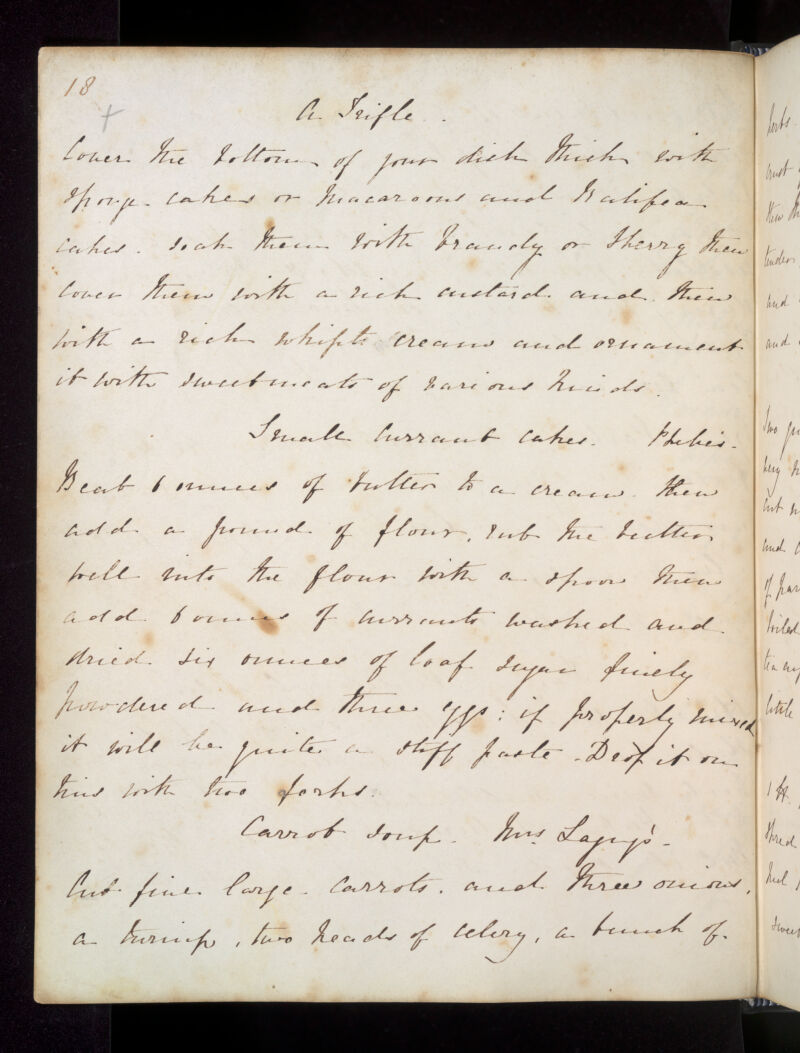 18
+
A Trifle.
Cover the bottom of your dish thick with
sponge cakes or macaroons and Ratifea
cakes. soak them with brandy or sherry then
cover them with a rich custard and then
with a rich whipt cream and ornament
it with sweetmeats of various kinds.
Small currant cakes.
Beat 6 ounces of butter to a cream. then
add a pound of flour, rub the butter
well into the flour with a spoon then
add 6 ounces of currants washed and
dried six ounces of loaf sugar finely
powdered and three eggs: if properly mixed
it will be quite a stiff paste - Drop it on
tins with two forks.
Carrot soup. Mrs
Cut five large carrots, and three onions,
a turnip, two heads of celery, a bunch of
herbs
and
and
and
boiled
little